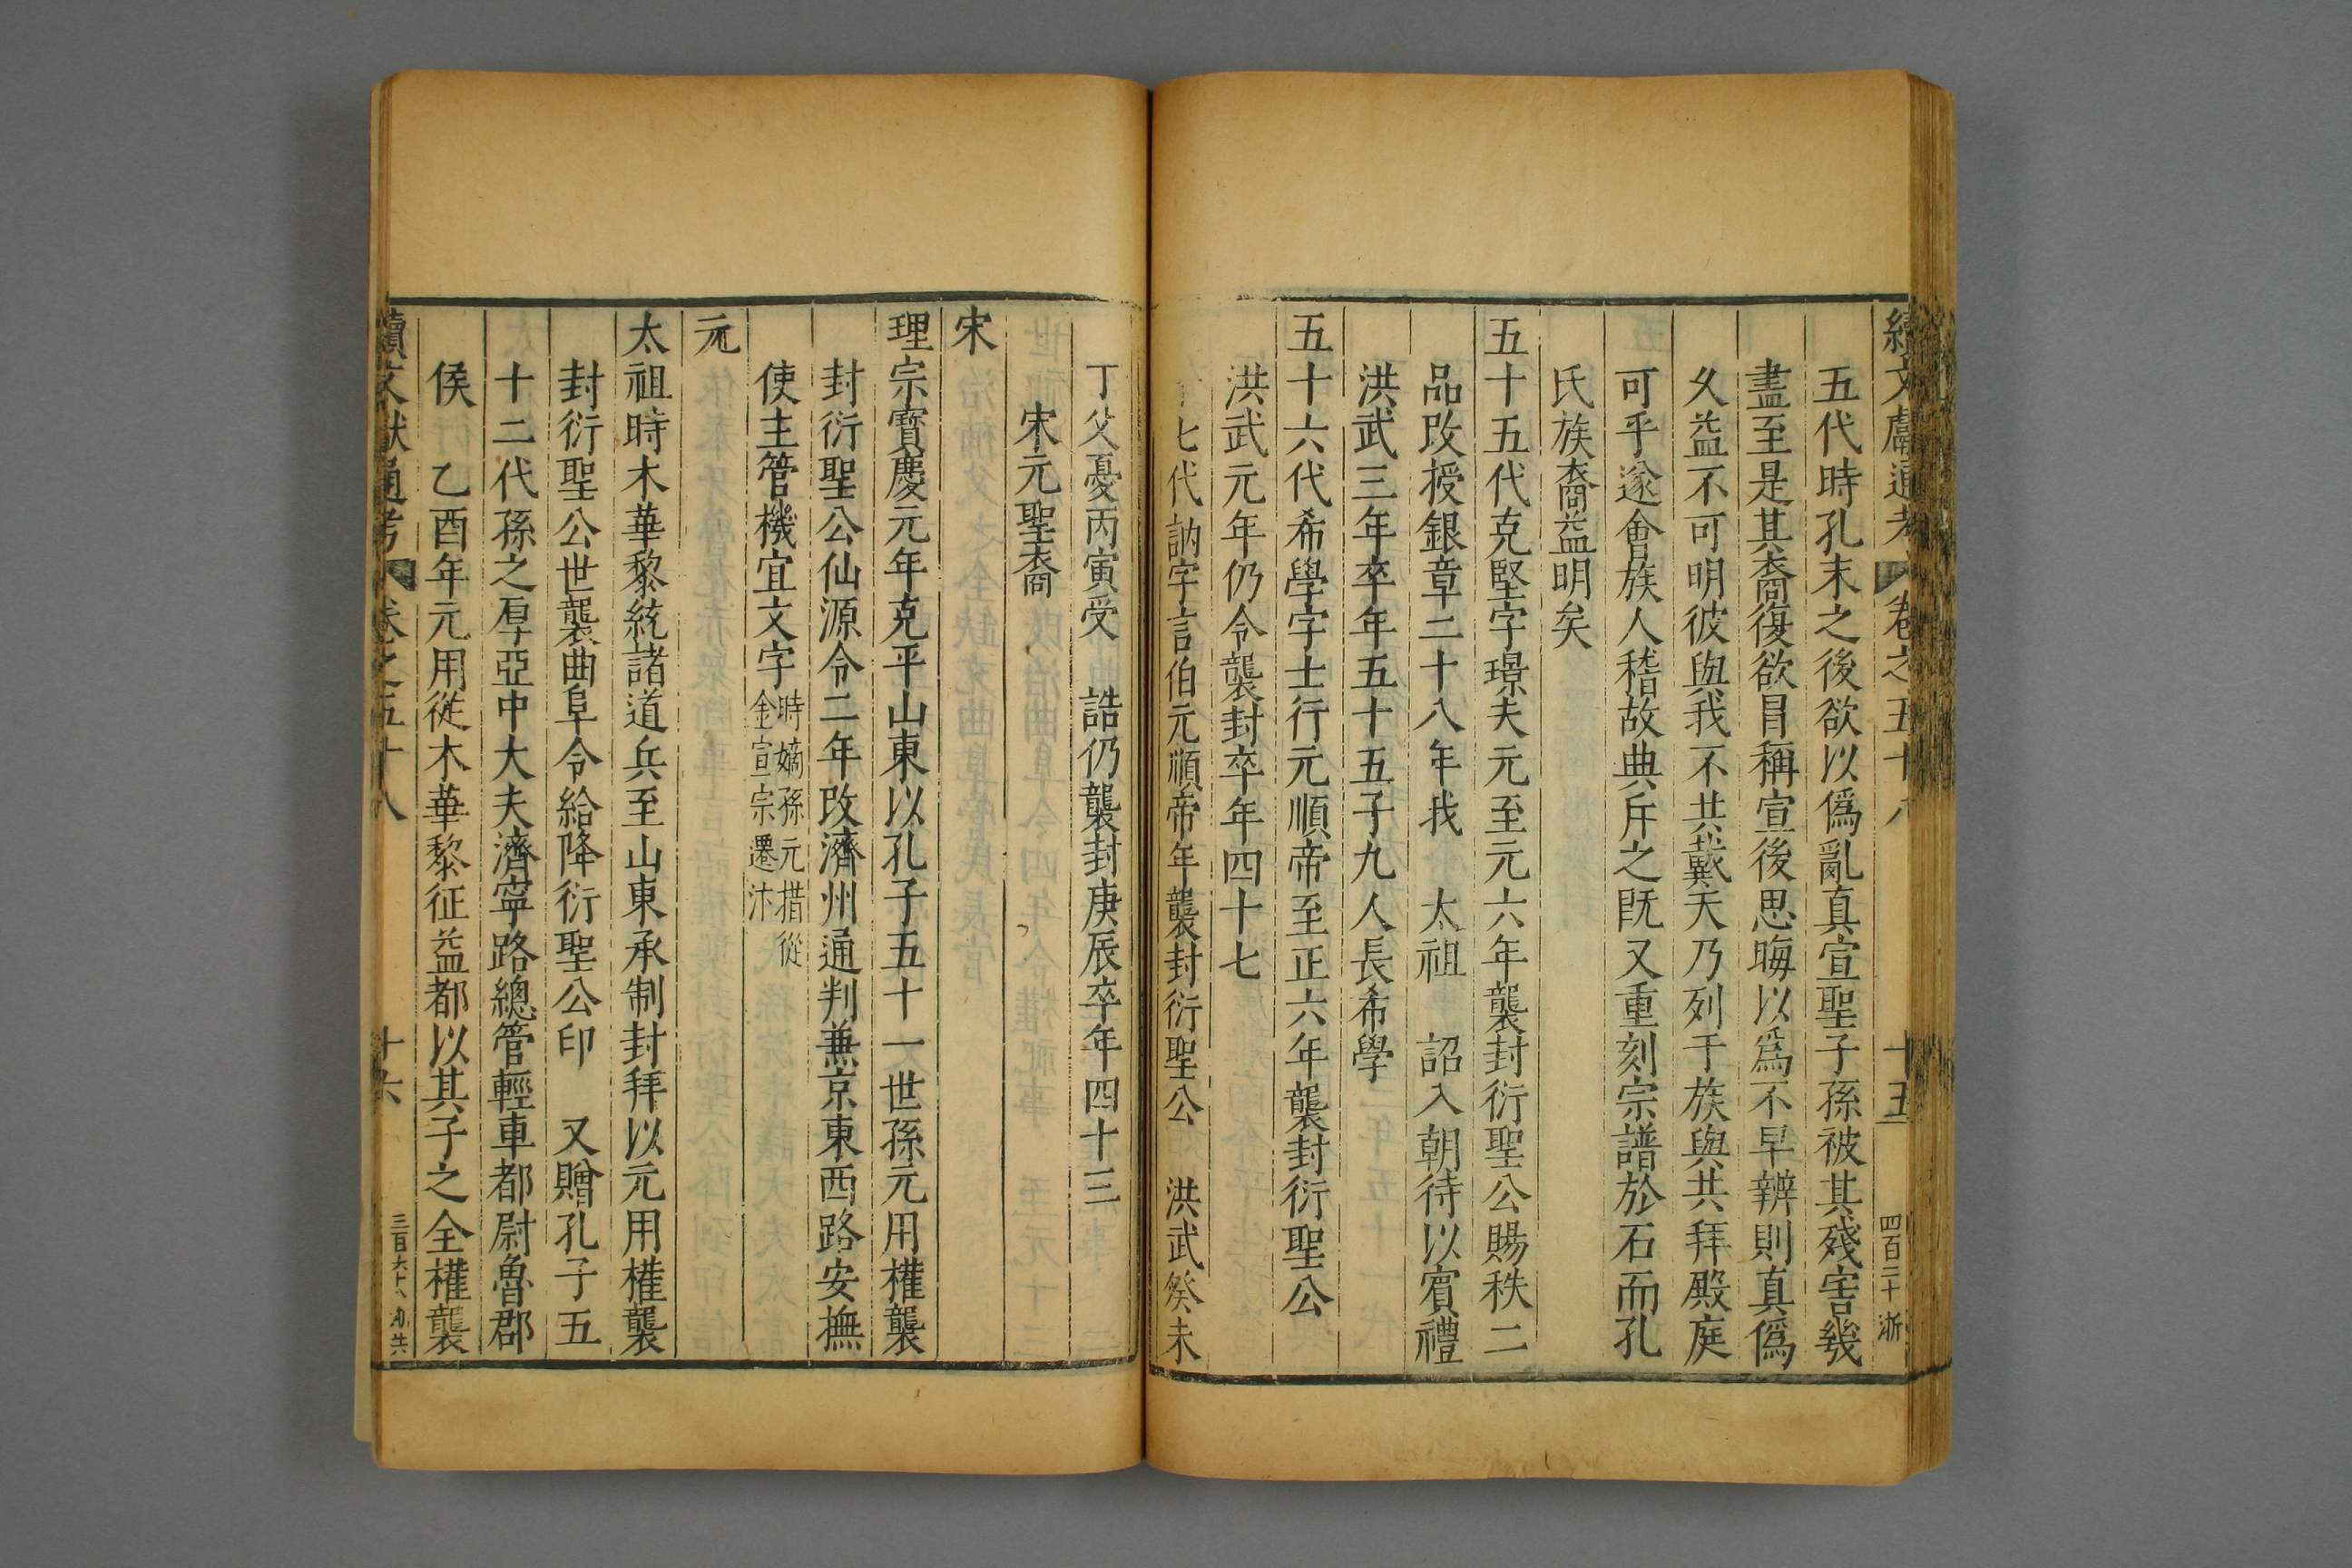 續文獻通考 卷之五十八 十五 四百二十 浙
五代時孔末之後欲以僞亂真宣聖子孫被其殘害幾
盡至是其裔復欲冒稱宣後思晦以爲不早辨則真僞
久益不可明彼與我不共戴天乃列于族與共拜殿庭
可乎遂會族人稽故典斥之既又重刻宗譜於石而孔
氏族裔益明矣
五十五代克堅字璟夫元至元六年襲封衍聖公賜秩二
品改授銀章二十八年我 太祖 詔入朝待以賓禮
洪武三年卒年五十五子九人長希學
五十六代希學字士行元順帝至正六年襲封衍聖公
洪武元年仍令襲封卒年四十七
七代訥字言伯元順帝年襲封衍聖公 洪武癸未
丁父憂丙寅受 誥仍襲封庚辰卒年四十三
宋元聖裔
宋
理宗寶慶元年克平山東以孔子五十一世孫元用權襲
封衍聖公仙源令二年改濟州通判兼京東西路安撫
使主管機宜文字時嫡孫元措從
金宣宗遷汴
元
太祖時木華黎統諸道兵至山東承制封拜以元用權襲
封衍聖公世襲曲阜令給降衍聖公印 又贈孔子五
十二代孫之厚亞中大夫濟寧路總管輕車都尉魯郡
侯 乙酉年元用從木華黎征益都以其子之全權襲
續文獻通考 卷之五十八 十六 三百六十八